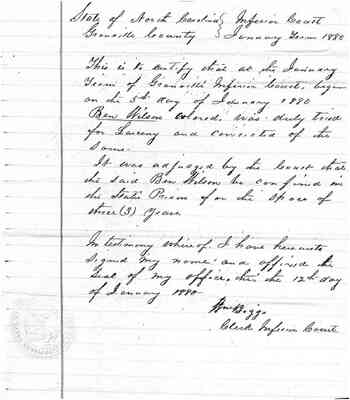 State of North Carolina } Inferior Court
Granville County } January Term 1880
This is to certify that at the January
Term of Granville Inferior Court, begun
on the 5th day of January 1880
Ben Wilson colored, was duly tried
for Larceny and convicted of the
same.
It was adjudged by the Court that
the said Ben Wilson be confined in
the State's Prison for the space of
three (3) Years.
In testimony whereof I have hereunto
signed my name and affixed the
Seal of my office, this the 12th day
of January 1880
Clerk Inferior Court